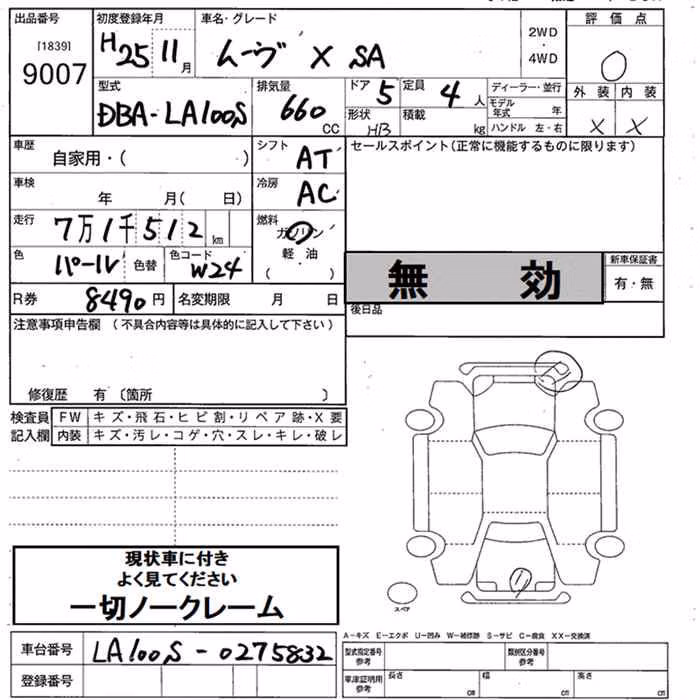 出品番号
[1839]
9007
初度登録年月
H25 11月
車名・グレード
ムーヴ X SA
2WD
・
4WD
評価点
0
型式
DBA-LA100S
排気量
660
CC
ドア 5
形状 HB
定員 4人
積載 kg
ディーラー・並行
モデル年式 年
ハンドル 左・右
外装 内装
X X
車歴
自家用・( )
シフト AT
セールスポイント(正常に機能するものに限ります)
車検
年 月( 日)
冷房 AC
走行 7万1千512 km
燃料
ガソリン
軽油
( )
色 パール 色替 色コード W24
無 効
新車保証書
有・無
R券 8490円 名変期限 月 日
後日品
注意事項申告欄 (不具合内容等は具体的に記入して下さい)
修復歴 有〔箇所 〕
検査員記入欄
FW キズ・飛石・ヒビ割・リペア跡・X要
内装 キズ・汚レ・コゲ・穴・スレ・キレ・破レ
現状車に付き
よく見てください
一切ノークレーム
スペア
A-キズ E-エクボ U-凹み W-補修跡 S-サビ C-腐食 XX-交換済
車台番号 LA100S-0275832
登録番号
型式指定番号
参考
類別区分番号
参考
車庫証明用
参考
長さ cm
幅 cm
高さ cm